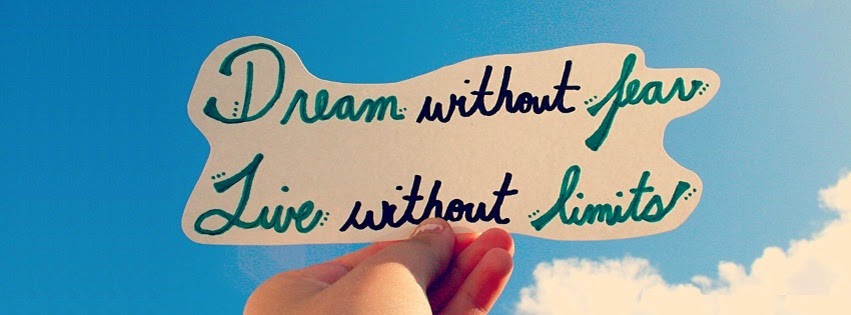 Dream without fear
Live without limits